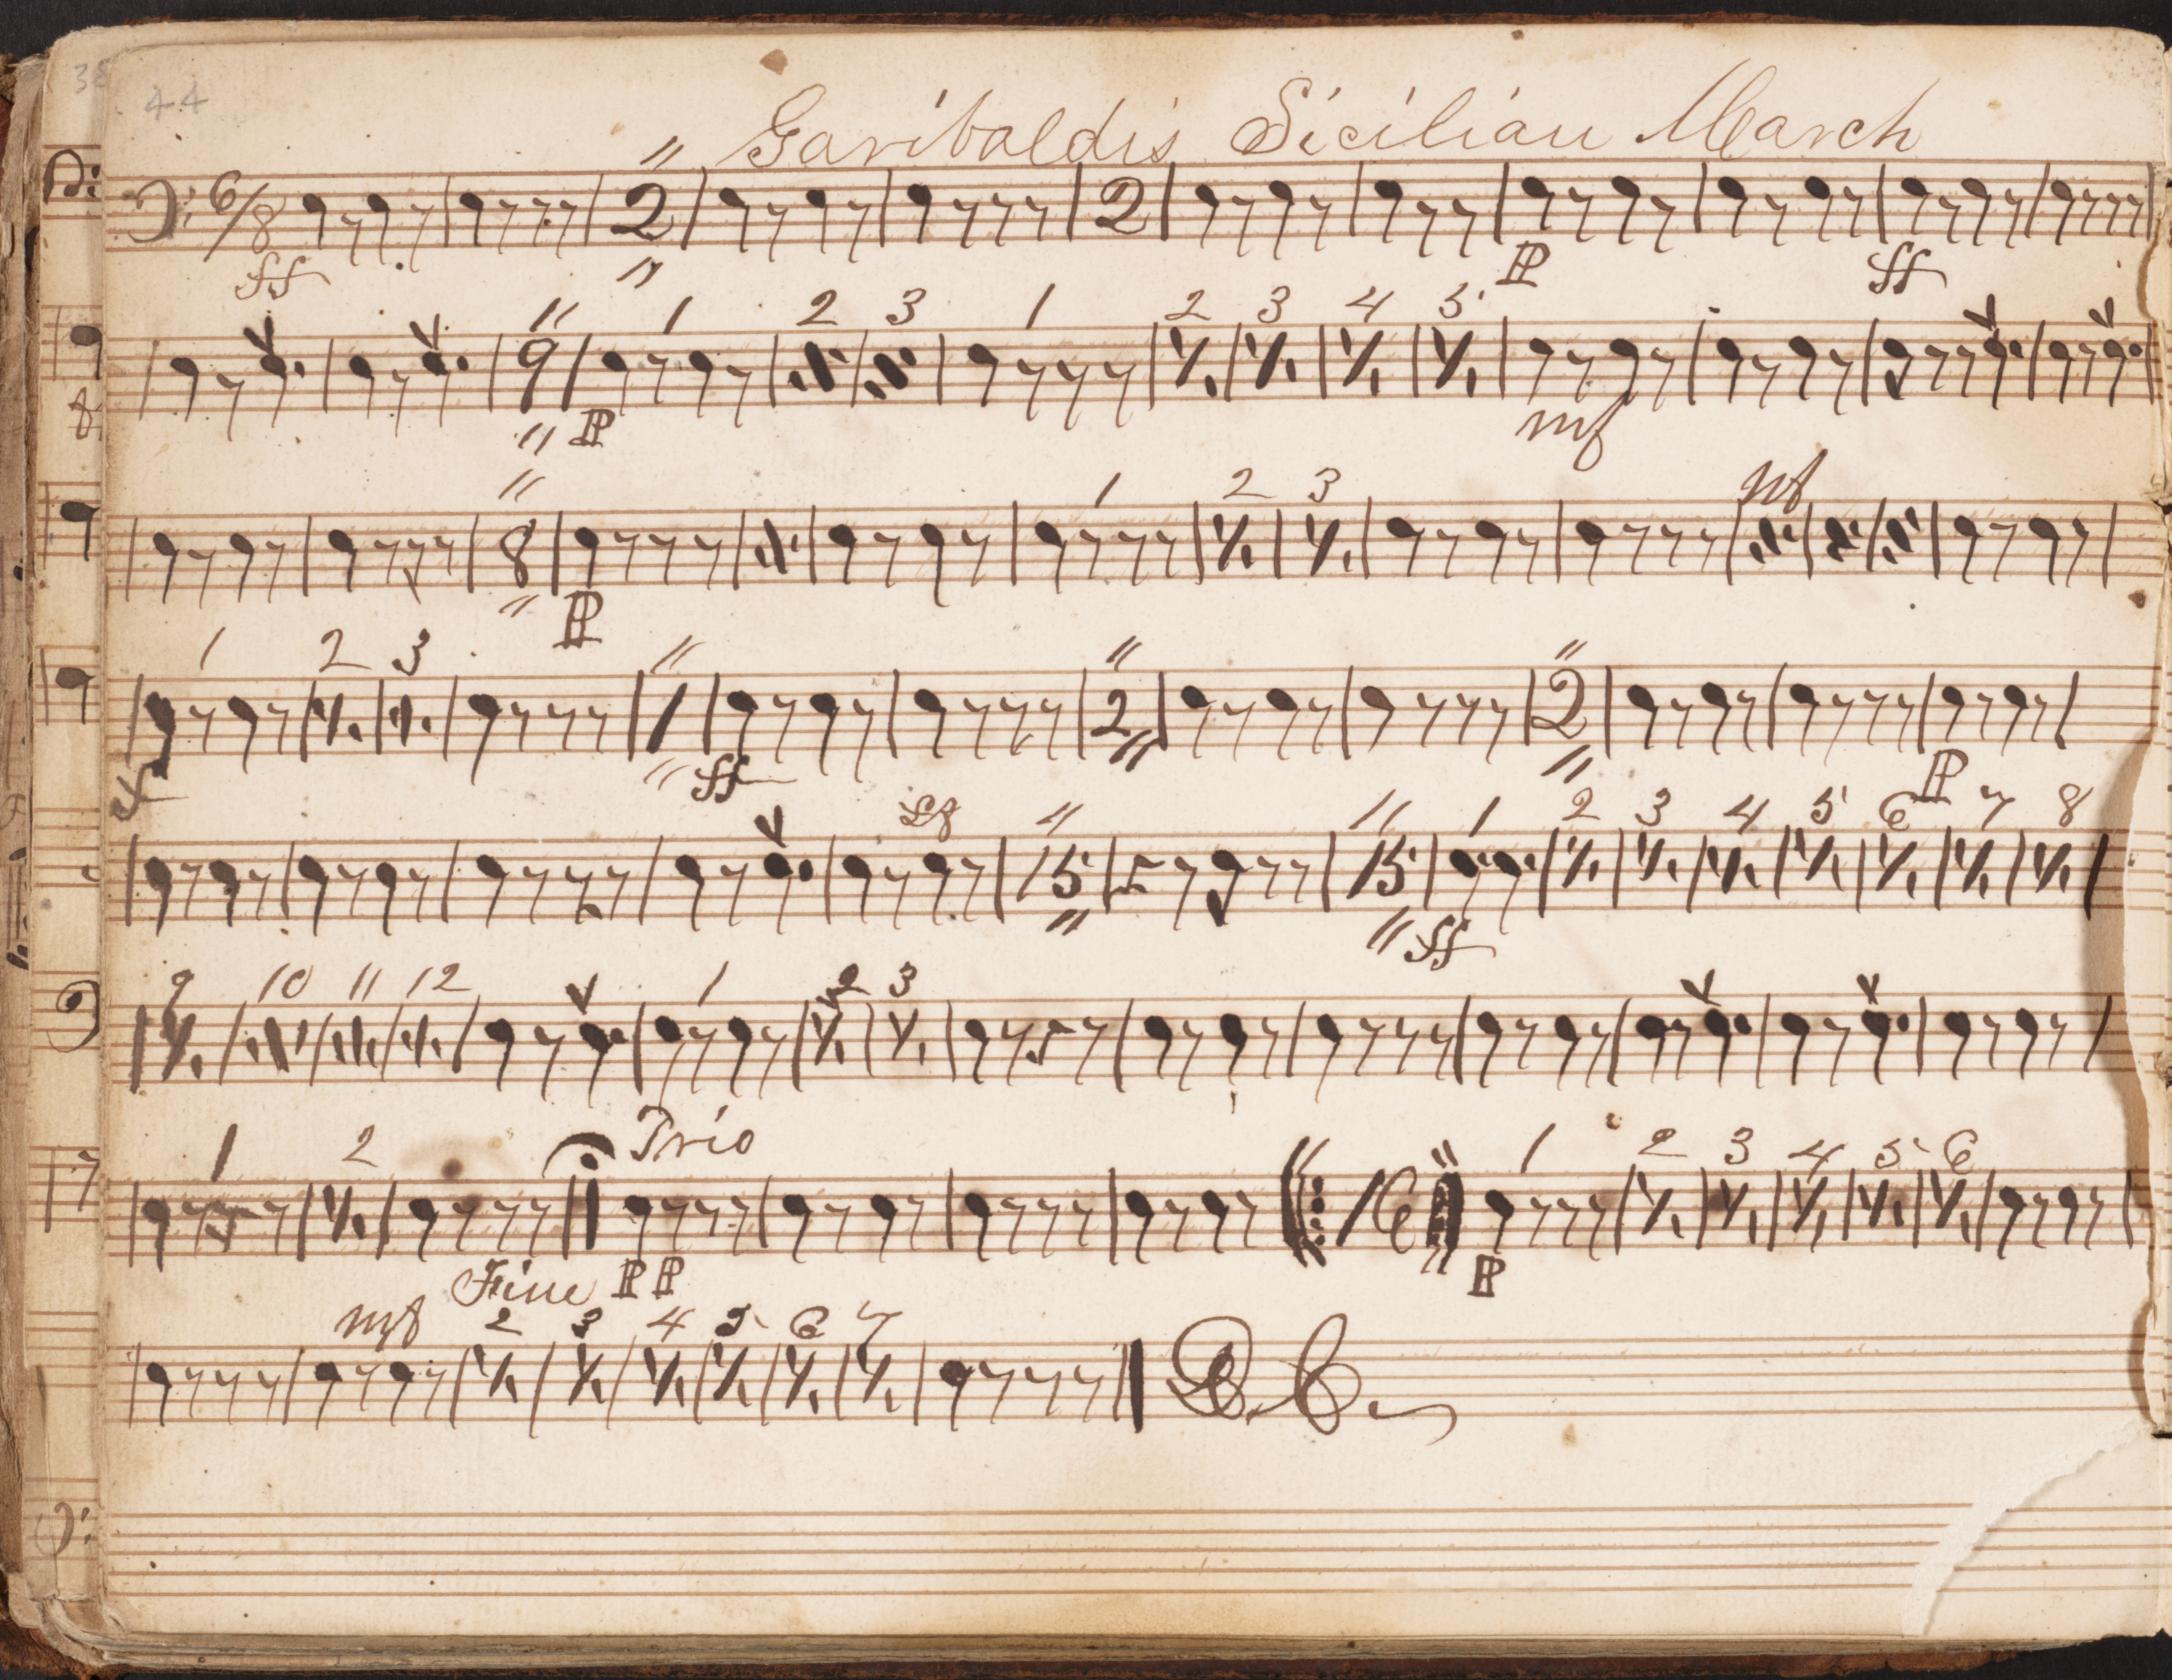 44
Garibaldis Sicilian March
6/8 2 2
ff P ff
1 2 3 1 2 3 4 5
9
P mf
1 2 3 mf
8
P
1 2 3
1 2 2
ff P
1 2 3 4 5 6 7 8
15 15
ff
9 10 11 12 1 2 3
1 2 Trio 1 2 3 4 5 6
16
Fine PP P
mf 2 3 4 5 6 7
D.C.